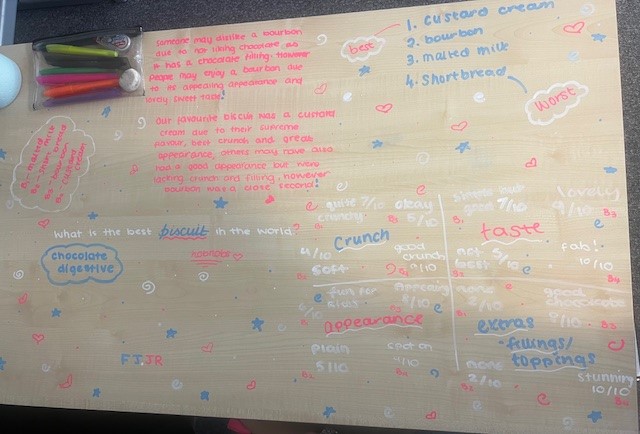 Someone may dislike a bourbon
due to not liking chocolate as
it has a chocolate filling. However
people may enjoy a bourbon due
to its appealing appearance and
lovely sweet taste!
best
1. custard cream
2. bourbon
3. malted milk
4. Shortbread
worst
Our favourite biscuit was a custard
cream due to their supreme
flavour, best crunch and great
appearance, others may have also
had a good appearance but were
lacking crunch and filling, however
bourbon was a close second!
B1 - malted milk
B2 - shortbread
B3 - bourbon
B4 - custard
cream
What is the best biscuit in the world?
chocolate
digestive
nobnobs
FJJR
quite 7/10
crunchy
okay
5/10
Crunch
4/10
soft
good
crunch
9/10
good 7/10
lovely
9/10
taste
not 5/10
best
fab!
10/10
fun for
kids
appearance
plain
5/10
9/10
none
2/10
good
chocolate
9/10
extras
- fillings/
toppings
none
2/10
stunning
10/10